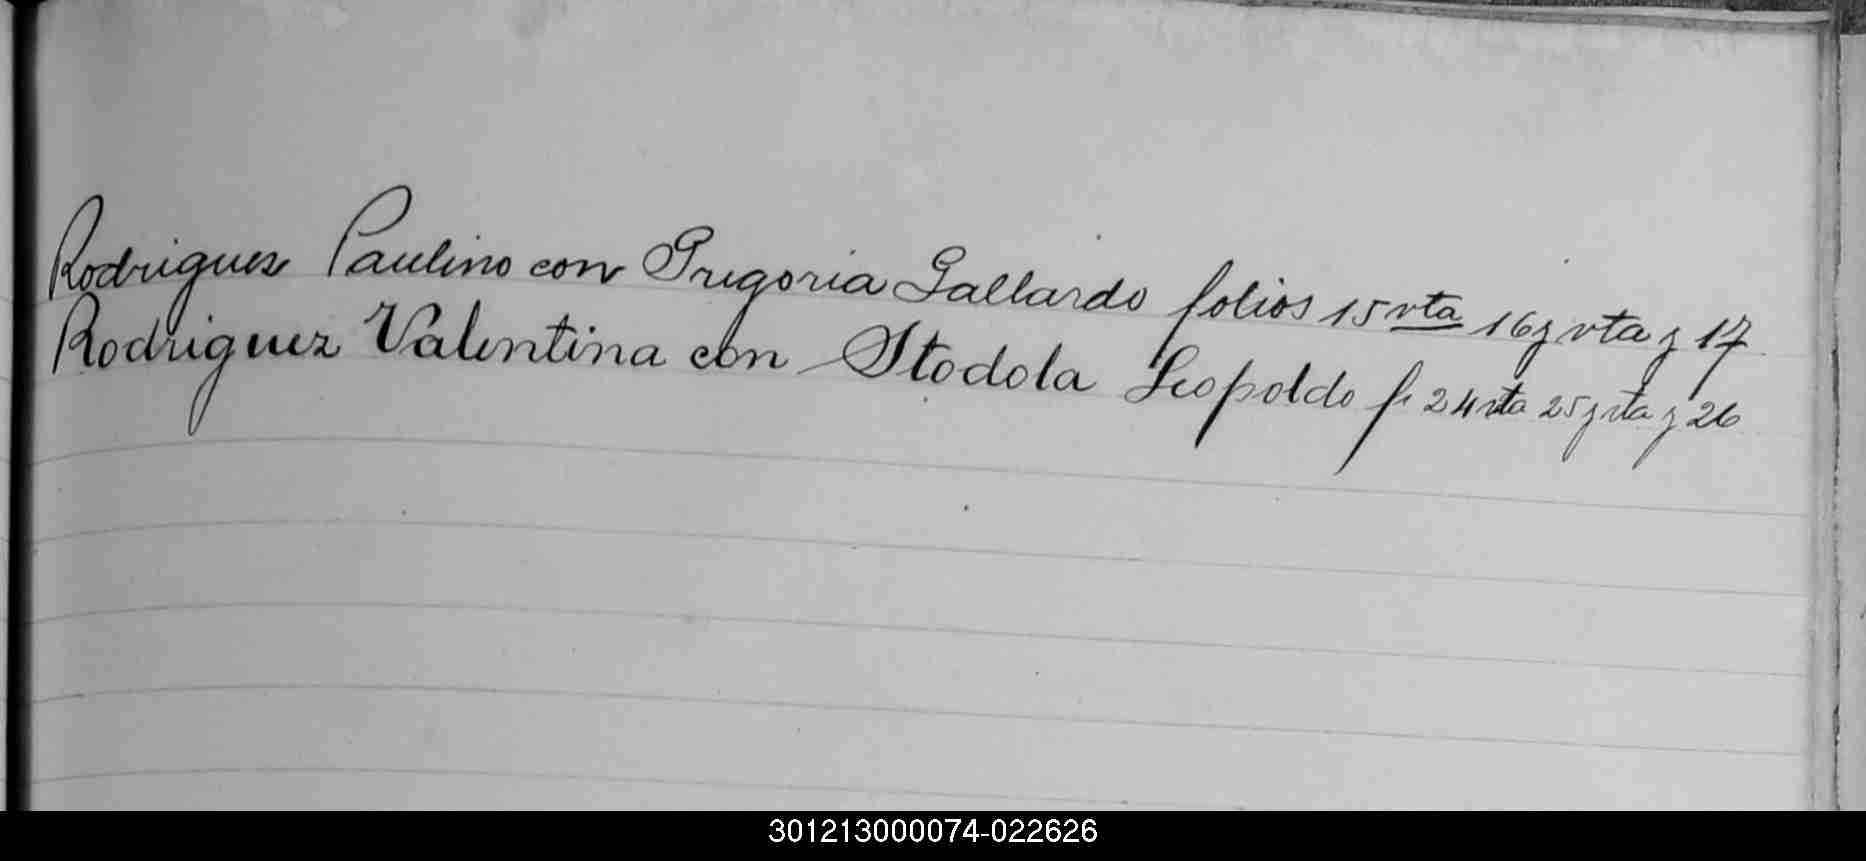 Rodriguez Paulino con Gregoria Gallardo folios 15 vta 16 y vta y 17
Rodriguez Valentina con Stodola Leopoldo f. 24 vta 25 y vta y 26
301213000074-022626